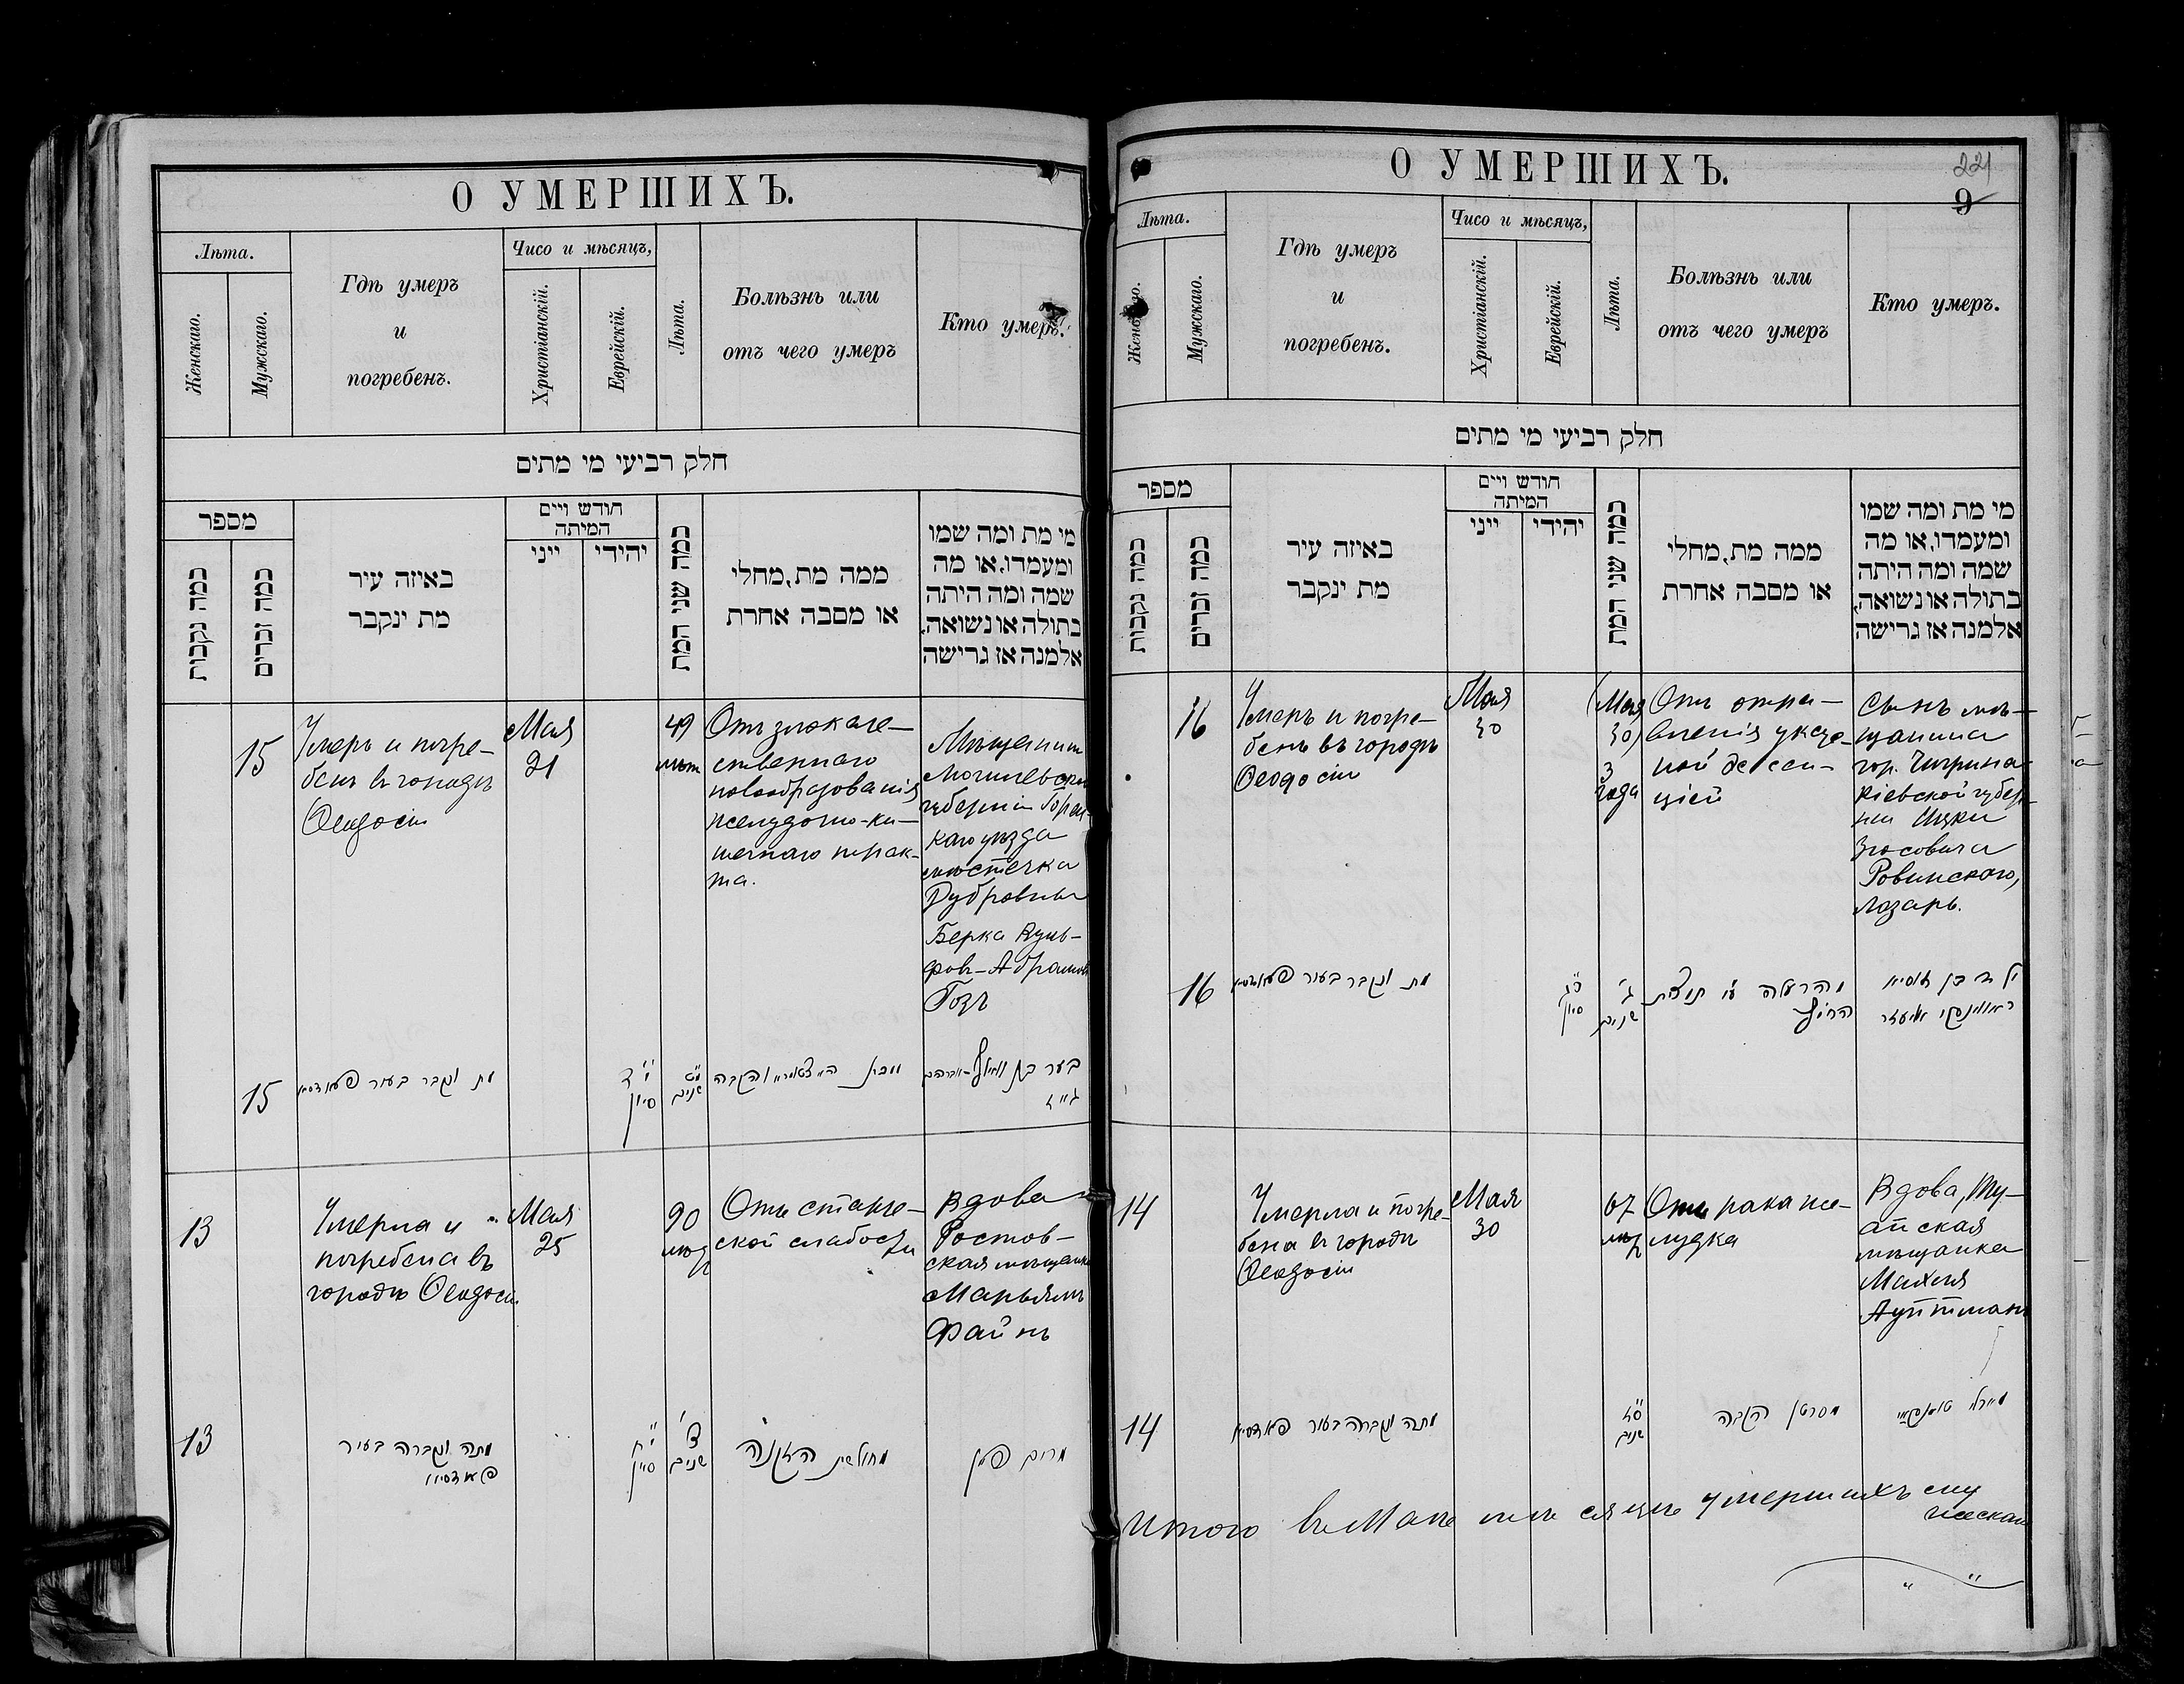 О УМЕРШИХЪ.
Лѣта.
Женскаго.
Мужскаго.
Гдѣ умеръ
и
погребенъ.
Чисо и мѣсяцъ,
Христіанскій.
Еврейскій.
Лѣта.
Болѣзнь или
отъ чего умеръ
Кто умеръ.
חלק רביעי מי מתים
מספר
כמה נקבות
כמה זכרים
באיזה עיר
מת ינקבר
חודש ויים
המיתה
ייני
יהידי
כמה שני המת
ממה מת, מחלי
או מסבה אחרת
מי מת ומה שמו
ומעמדו, או מה
שמה ומה היתה
בתולה או נשואה,
אלמנה אז גרישה
15
Умеръ и погре-
бенъ въ городѣ
Ѳеодосіи
Мая
21
49
лѣт
Отъ злокаче-
ственнаго
новообразованія
желудочно-ки-
шечнаго трак-
та.
Мѣщанинъ
Могилевской
губерніи Горец-
каго уѣзда
мѣстечка
Дубровны
Берка Вуль-
фов-Абрамов
Гозъ
15
מת ונקבר בעיר פעאדסיא
י"ד
סיון
מ"ט
שנים
13
Умерла и
погребена въ
городѣ Ѳеодосіи.
Мая
25
90
лѣтъ
Отъ старче-
ской слабости
Вдова
Ростов-
ская мѣщанка
Марьямъ
Файнъ
13
מתה ונקברה בעיר
פאדסיא
י"ח
סיון
צ'
שנים
מחולשת הזקנה
מרים פיין
О УМЕРШИХЪ.
221
9
Лѣта.
Женскаго.
Мужскаго.
Гдѣ умеръ
и
погребенъ.
Чисо и мѣсяцъ,
Христіанскій.
Еврейскій.
Лѣта.
Болѣзнь или
отъ чего умеръ
Кто умеръ.
חלק רביעי מי מתים
מספר
כמה נקבות
כמה זכרים
באיזה עיר
מת ינקבר
חודש ויים
המיתה
ייני
יהידי
כמה שני המת
ממה מת, מחלי
או מסבה אחרת
מי מת ומה שמו
ומעמדו, או מה
שמה ומה היתה
בתולה או נשואה,
אלמנה אז גרישה
16
Умеръ и погре-
бенъ въ городѣ
Ѳеодосіи
Мая
30
(Мая
30)
3
года
Отъ отра-
вленія уксус-
ной эссен-
ціей
Сынъ мѣ-
щанина
гор. Чигирина
Кіевской губер-
ніи Ицки
Зосовича
Ровинскаго,
Лазарь.
16
מת ונקבר בעיר פעאדסיא
כ"ג
סיון
ג'
שנים
14
Умерла и погре-
бена въ городѣ
Ѳеодосіи
Мая
30
67
лѣтъ
Отъ рака же-
лудка
Вдова, Ту-
апская
мѣщанка
Махля
Ауптманъ
14
מתה ונקברה בעיר פאדסיא
ס"ז
שנים
מסרטן הקבה
Итого въ Маѣ мѣсяцѣ умершихъ